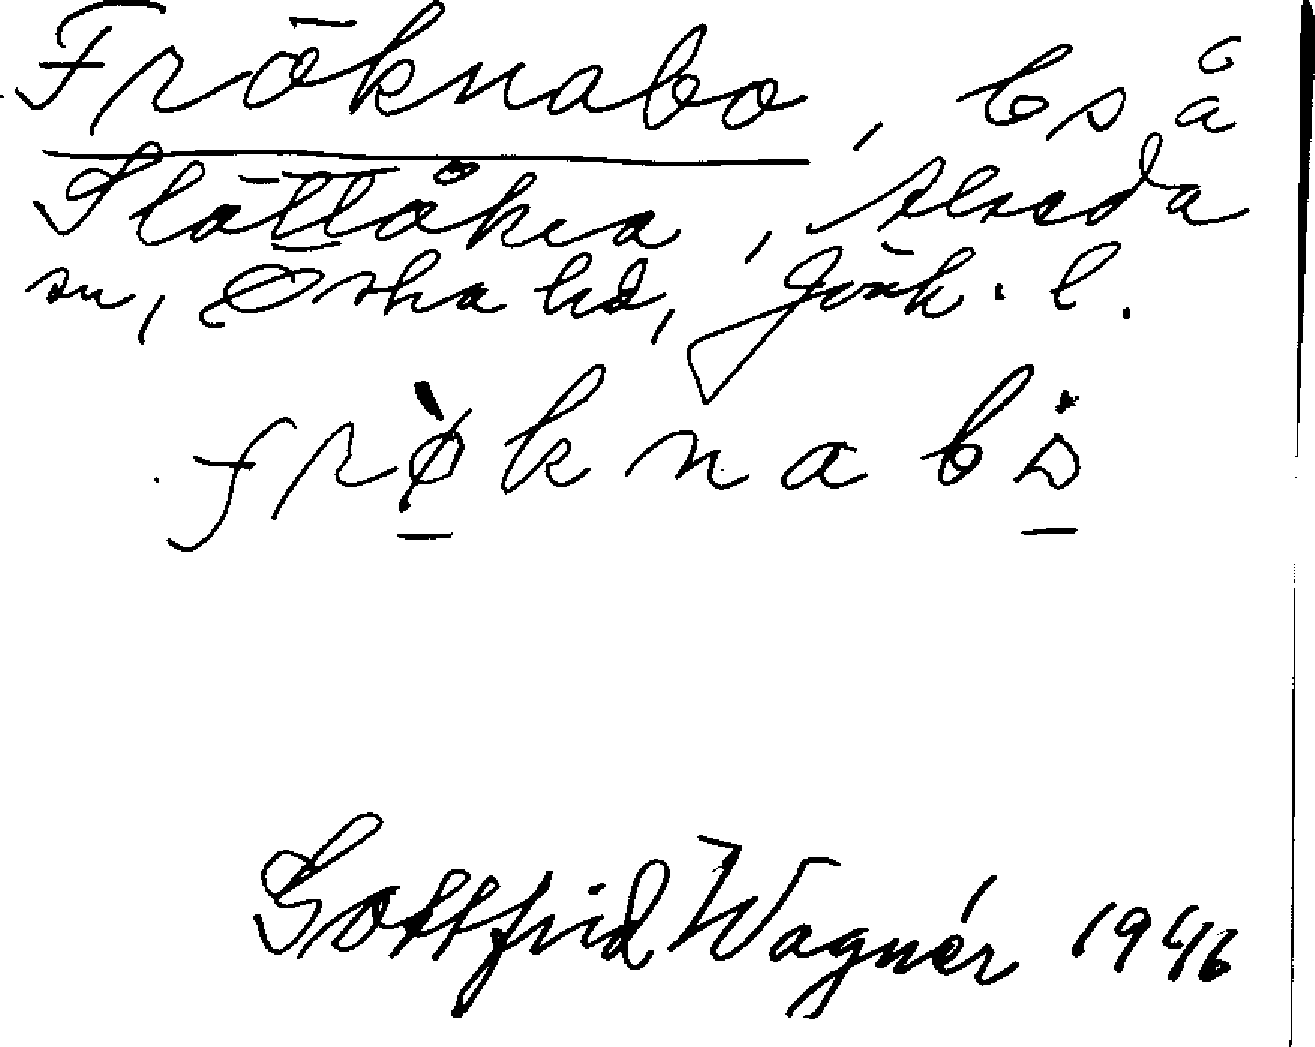 Fröknabo, bs å
Slättåkra, Slseda
sn, Östra hd, Jönk. l.
frø̀knabȯ
Gottfrid Wagnér 1946